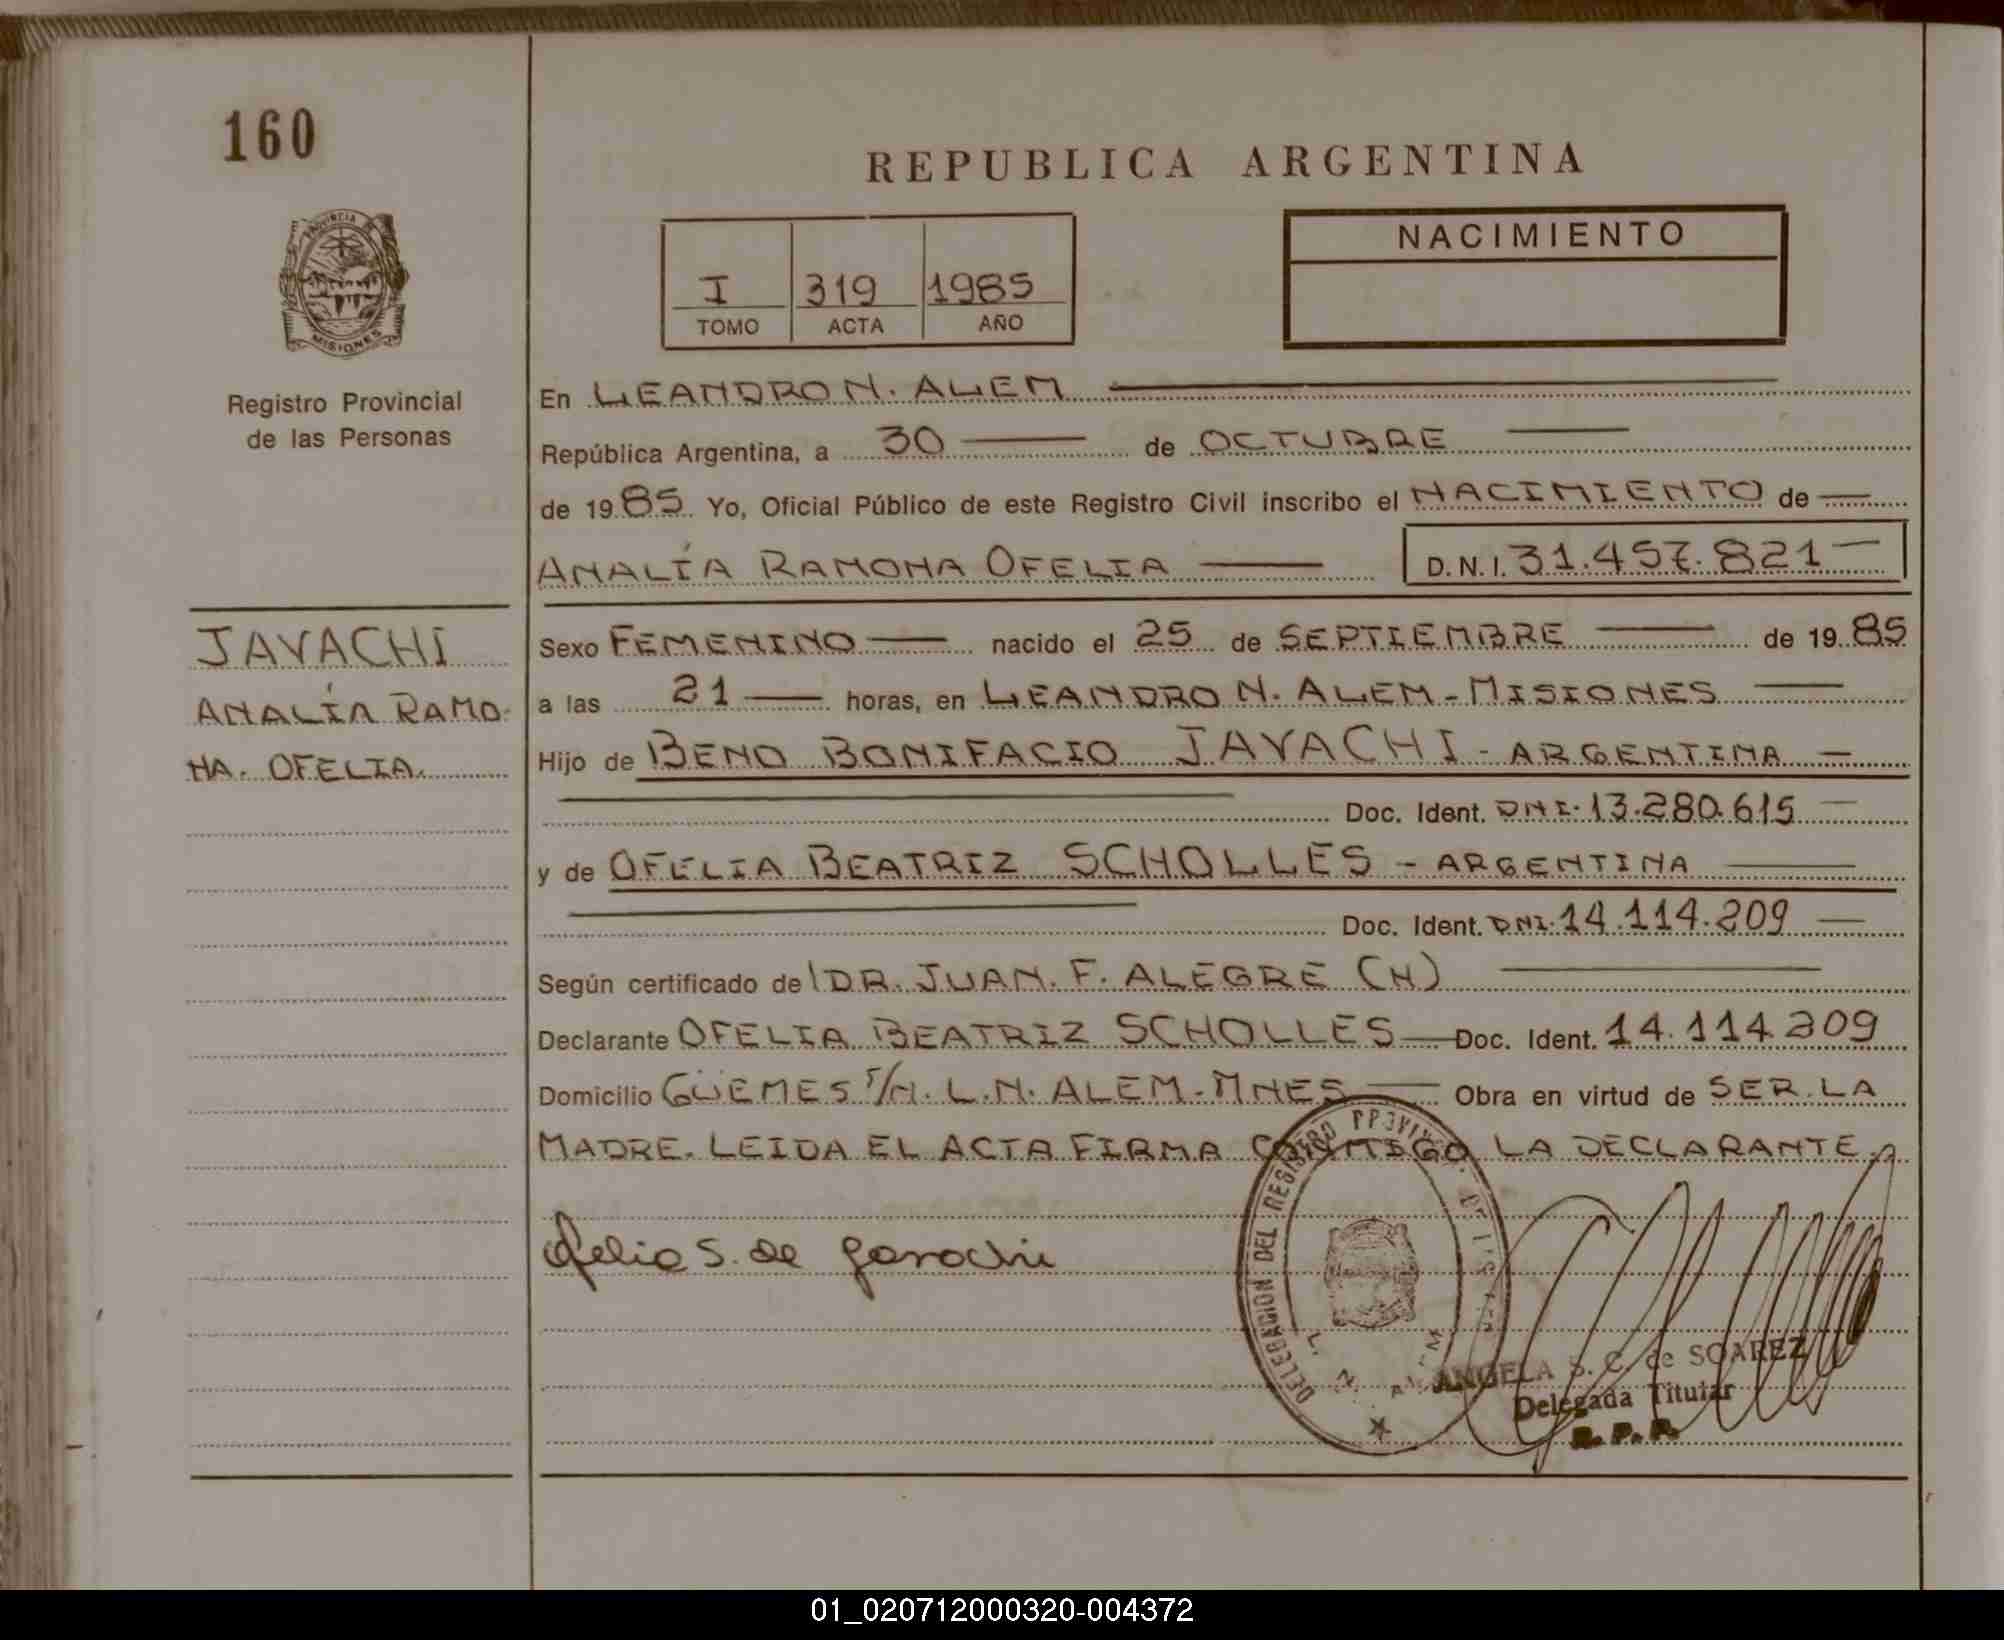 160
REPUBLICA ARGENTINA
PROVINCIA DE
MISIONES
Registro Provincial
de las Personas
I 319 1985
TOMO ACTA AÑO
NACIMIENTO
En LEANDRO N. ALEM
República Argentina, a 30 de OCTUBRE
de 1985. Yo, Oficial Público de este Registro Civil inscribo el NACIMIENTO de
ANALÍA RAMONA OFELIA D.N.I. 31.457.821
JAVACHI
ANALÍA RAMO-
NA. OFELIA.
Sexo FEMENINO nacido el 25 de SEPTIEMBRE de 1985
a las 21 horas, en LEANDRO N. ALEM - MISIONES
Hijo de BENO BONIFACIO JAVACHI - ARGENTINA
Doc. Ident. DNI. 13.280.615
y de OFELIA BEATRIZ SCHOLLES - ARGENTINA
Doc. Ident. DNI. 14.114.209
Según certificado de DR. JUAN. F. ALEGRE (N)
Declarante OFELIA BEATRIZ SCHOLLES Doc. Ident. 14.114.209
Domicilio GÜEMES S/N. L.N. ALEM - MNES Obra en virtud de SER LA
MADRE. LEIDA EL ACTA FIRMA CONMIGO LA DECLARANTE.
Ofelia S. de Javachi
DELEGACION DEL REGISTRO
L. N. ALEM
ANGELA S. C. de SOAREZ
Delegada Titular
R. P. P.
01_020712000320-004372